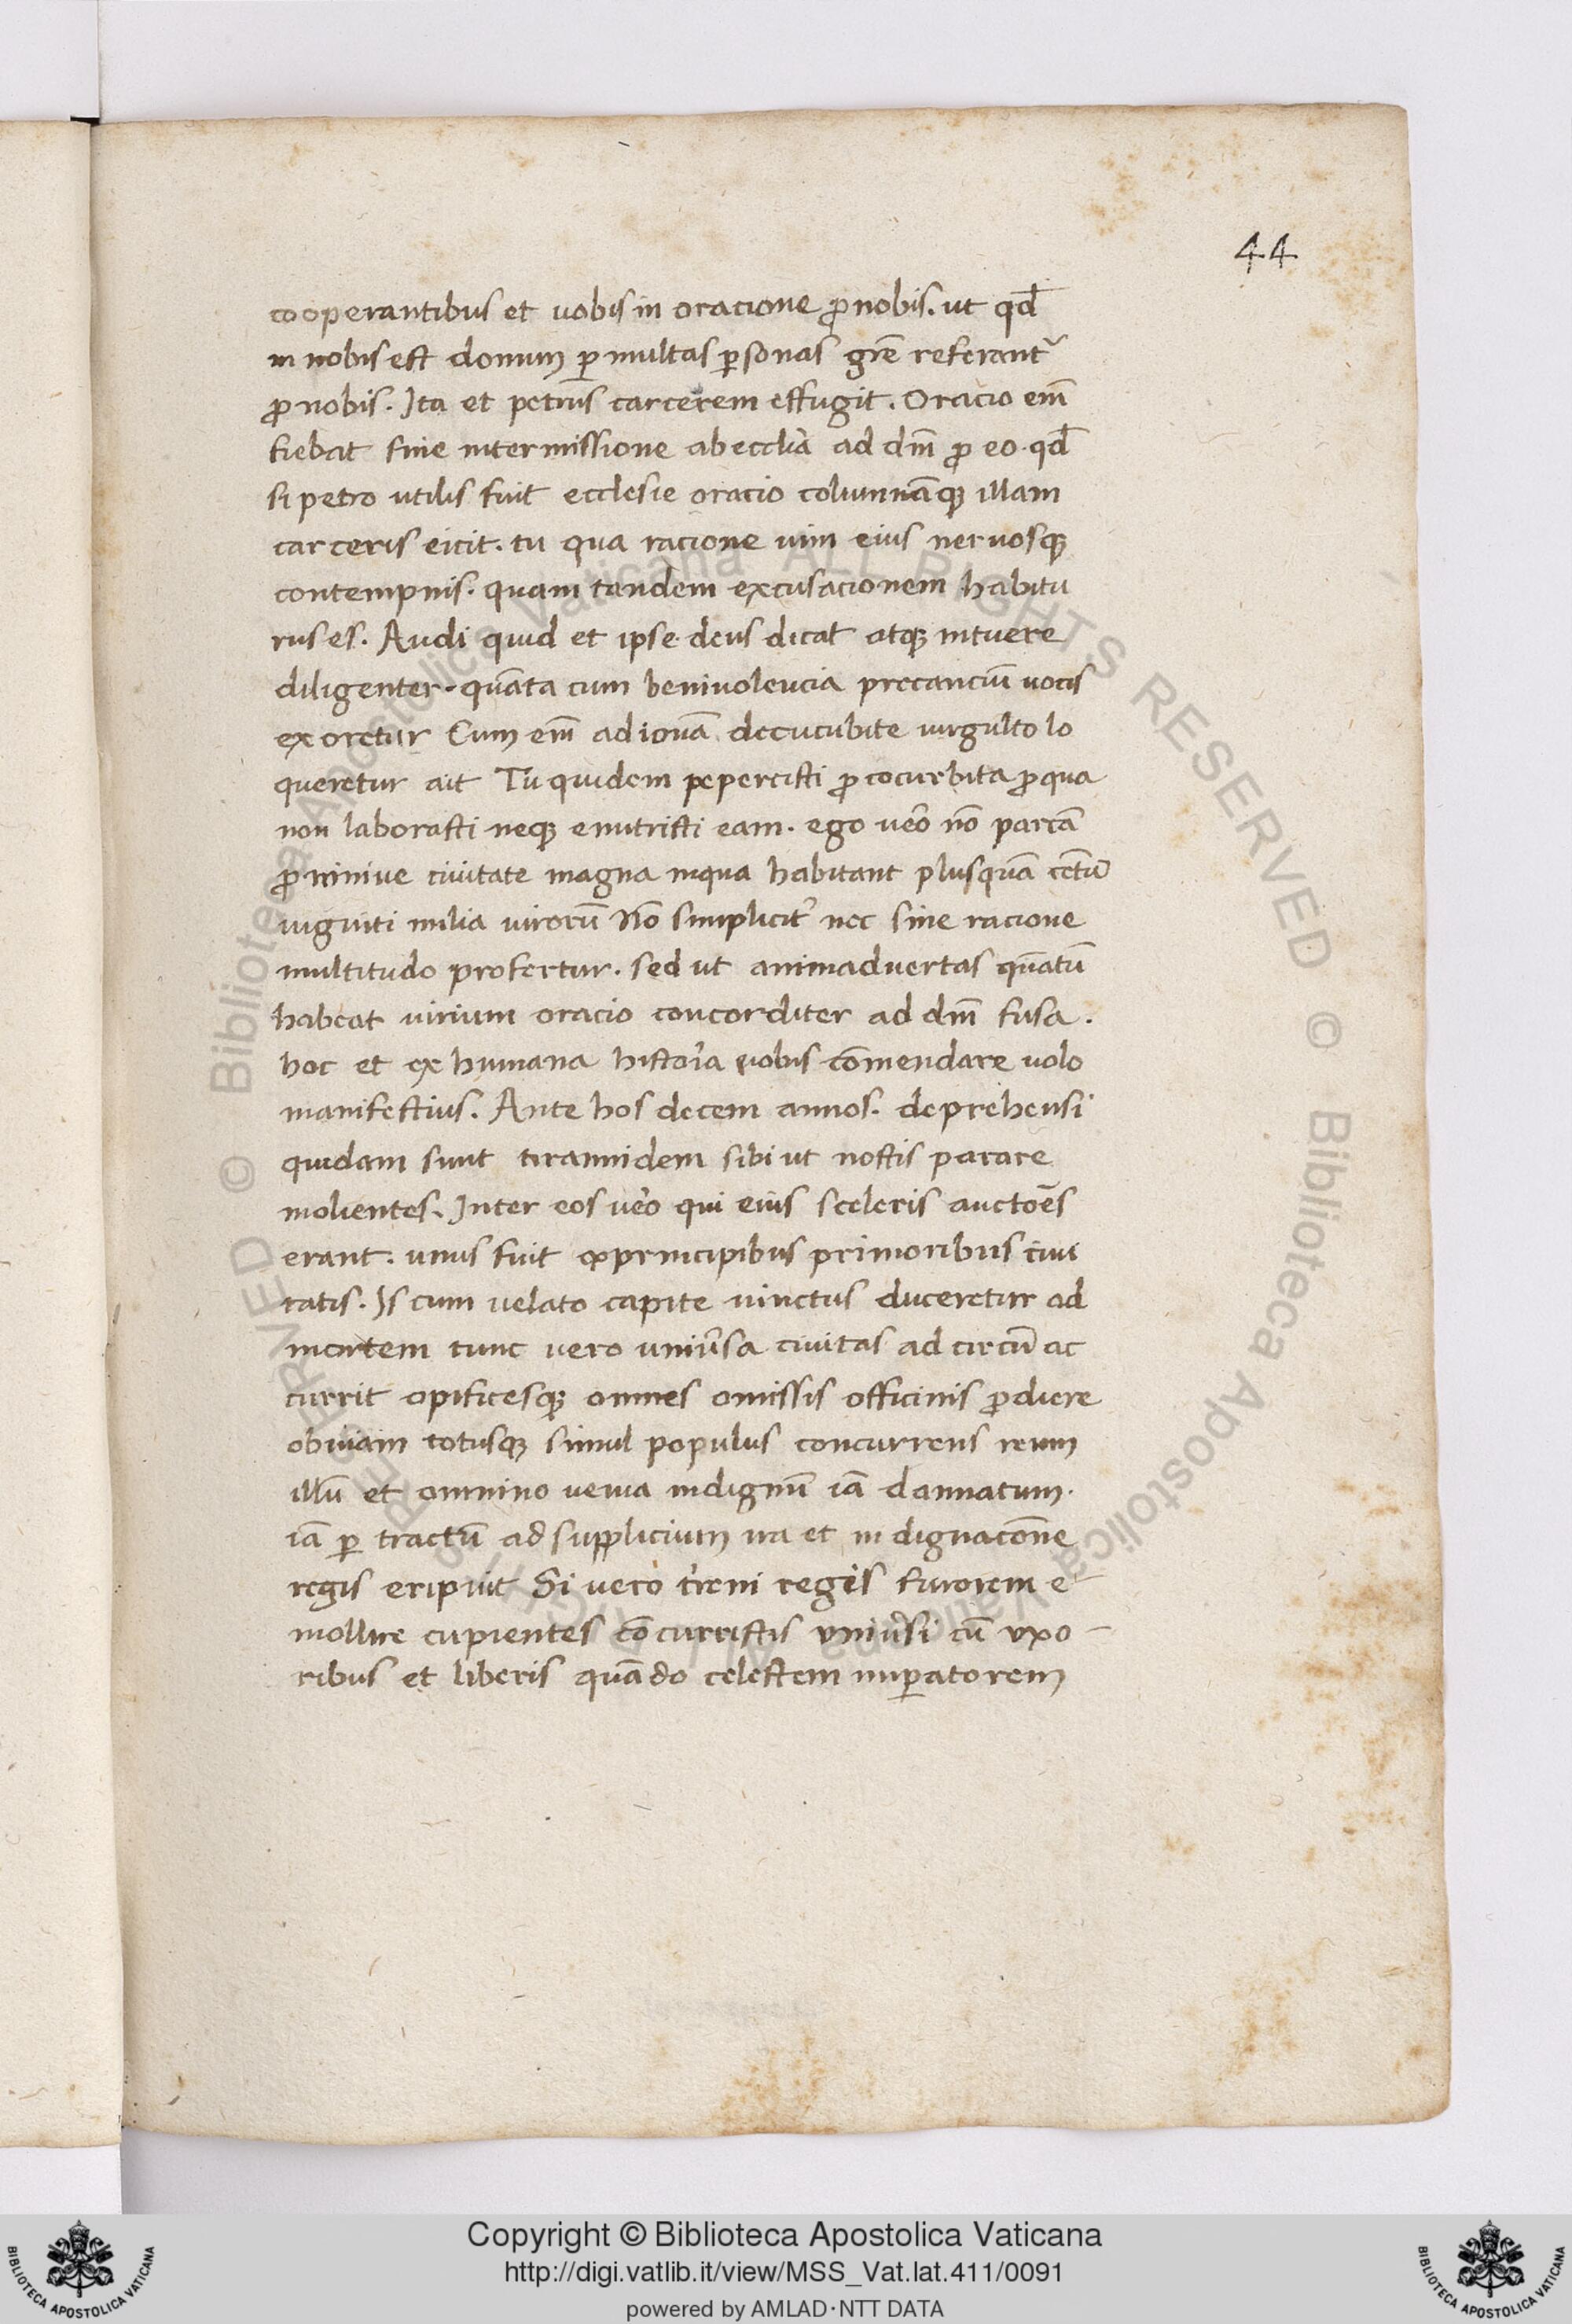 44
cooperantibus et uobis in oracione ꝓ nobis. ut qd̄
in nobis est donum ꝑ multas ꝑsonas gr̄e referant᷑
ꝓ nobis. Ita et petrus carcerem effugit. Oracio em̄
fiebat sine intermissione ab eccl̄ia ad dm̄ ꝓ eo. qd̄
si petro utilis fuit ecclesie oracio columnāqꝫ illam
carceris eicit. tu qua racione uim eius neruosqꝫ
contempnis. quam tandem excusacionem habitu
rus es. Audi quid et ipse deus dicat atqꝫ intuere
diligenter. quāta cum beniuolencia precanciū uocis
exoretur Cum em̄ ad ionā de cucubite uirgulto lo
queretur ait Tu quidem pepercisti ꝓ cocurbita ꝓ qua
non laborasti neqꝫ enutristi eam. ego uero nō parcā
ꝓ niniue ciuitate magna in qua habitant plusquā centū
uiginti milia uirorū Nō simplicit᷑ nec sine racione
multitudo profertur. sed ut animaduertas quātū
habeat uirium oracio concorditer ad dm̄ fusa.
hoc et ex humana historia uobis cōmendare uolo
manifestius. Ante hos decem annos. deprehensi
quidam sunt tirannidem sibi ut nostis parare
molientes. Inter eos uero qui eius sceleris auctoēs
erant. unus fuit ex principibus primoribus ciui
tatis. Is cum uelato capite uinctus duceretur ad
mortem tunc vero uniūsa ciuitas ad circū ac
currit opificesqꝫ omnes omissis officinis ꝓdiere
obuiam totusqꝫ simul populus concurrens reum
illū et omnino uenia indignū iā dannatum.
iā ꝑ tractū ad supplicium ira et indignacōne
regis eripuit Si vero tr̄eni regis furorem e
mollire cupientes cōcurristis vniūsi cū vxo-
ribus et liberis quādo celestem imꝑatorem
Copyright © Biblioteca Apostolica Vaticana
http://digi.vatlib.it/view/MSS_Vat.lat.411/0091
powered by AMLAD·NTT DATA